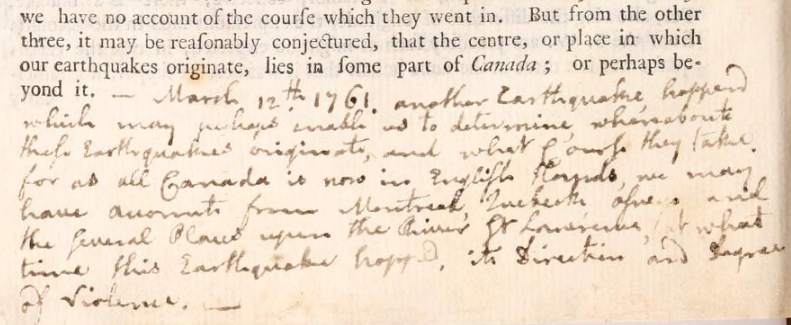 we have no account of the courſe which they went in. But from the other
three, it may be reaſonably conjectured, that the centre, or place in which
our earthquakes originate, lies in ſome part of Canada; or perhaps be-
yond it. — March 12th. 1761. another Earthquake happend
which may perhaps enable us to determine, whereabouts
theſe Earthquakes originate, and what Courſe they take.
for as all Canada is now in Engliſh Hands, we may
have accounts from Montreal, Quebeck and
the ſeveral Places upon the River St Lawrence, at what
time this Earthquake happd, its Direction and Degree
of Violence. —